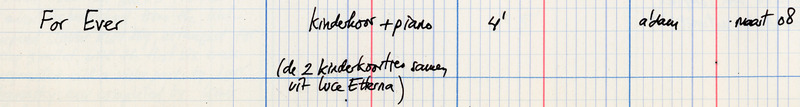 For Ever kinderkoor + piano 4' a'dam maart 08
(de 2 kinderkoortjes samen
uit Luce Etterna)